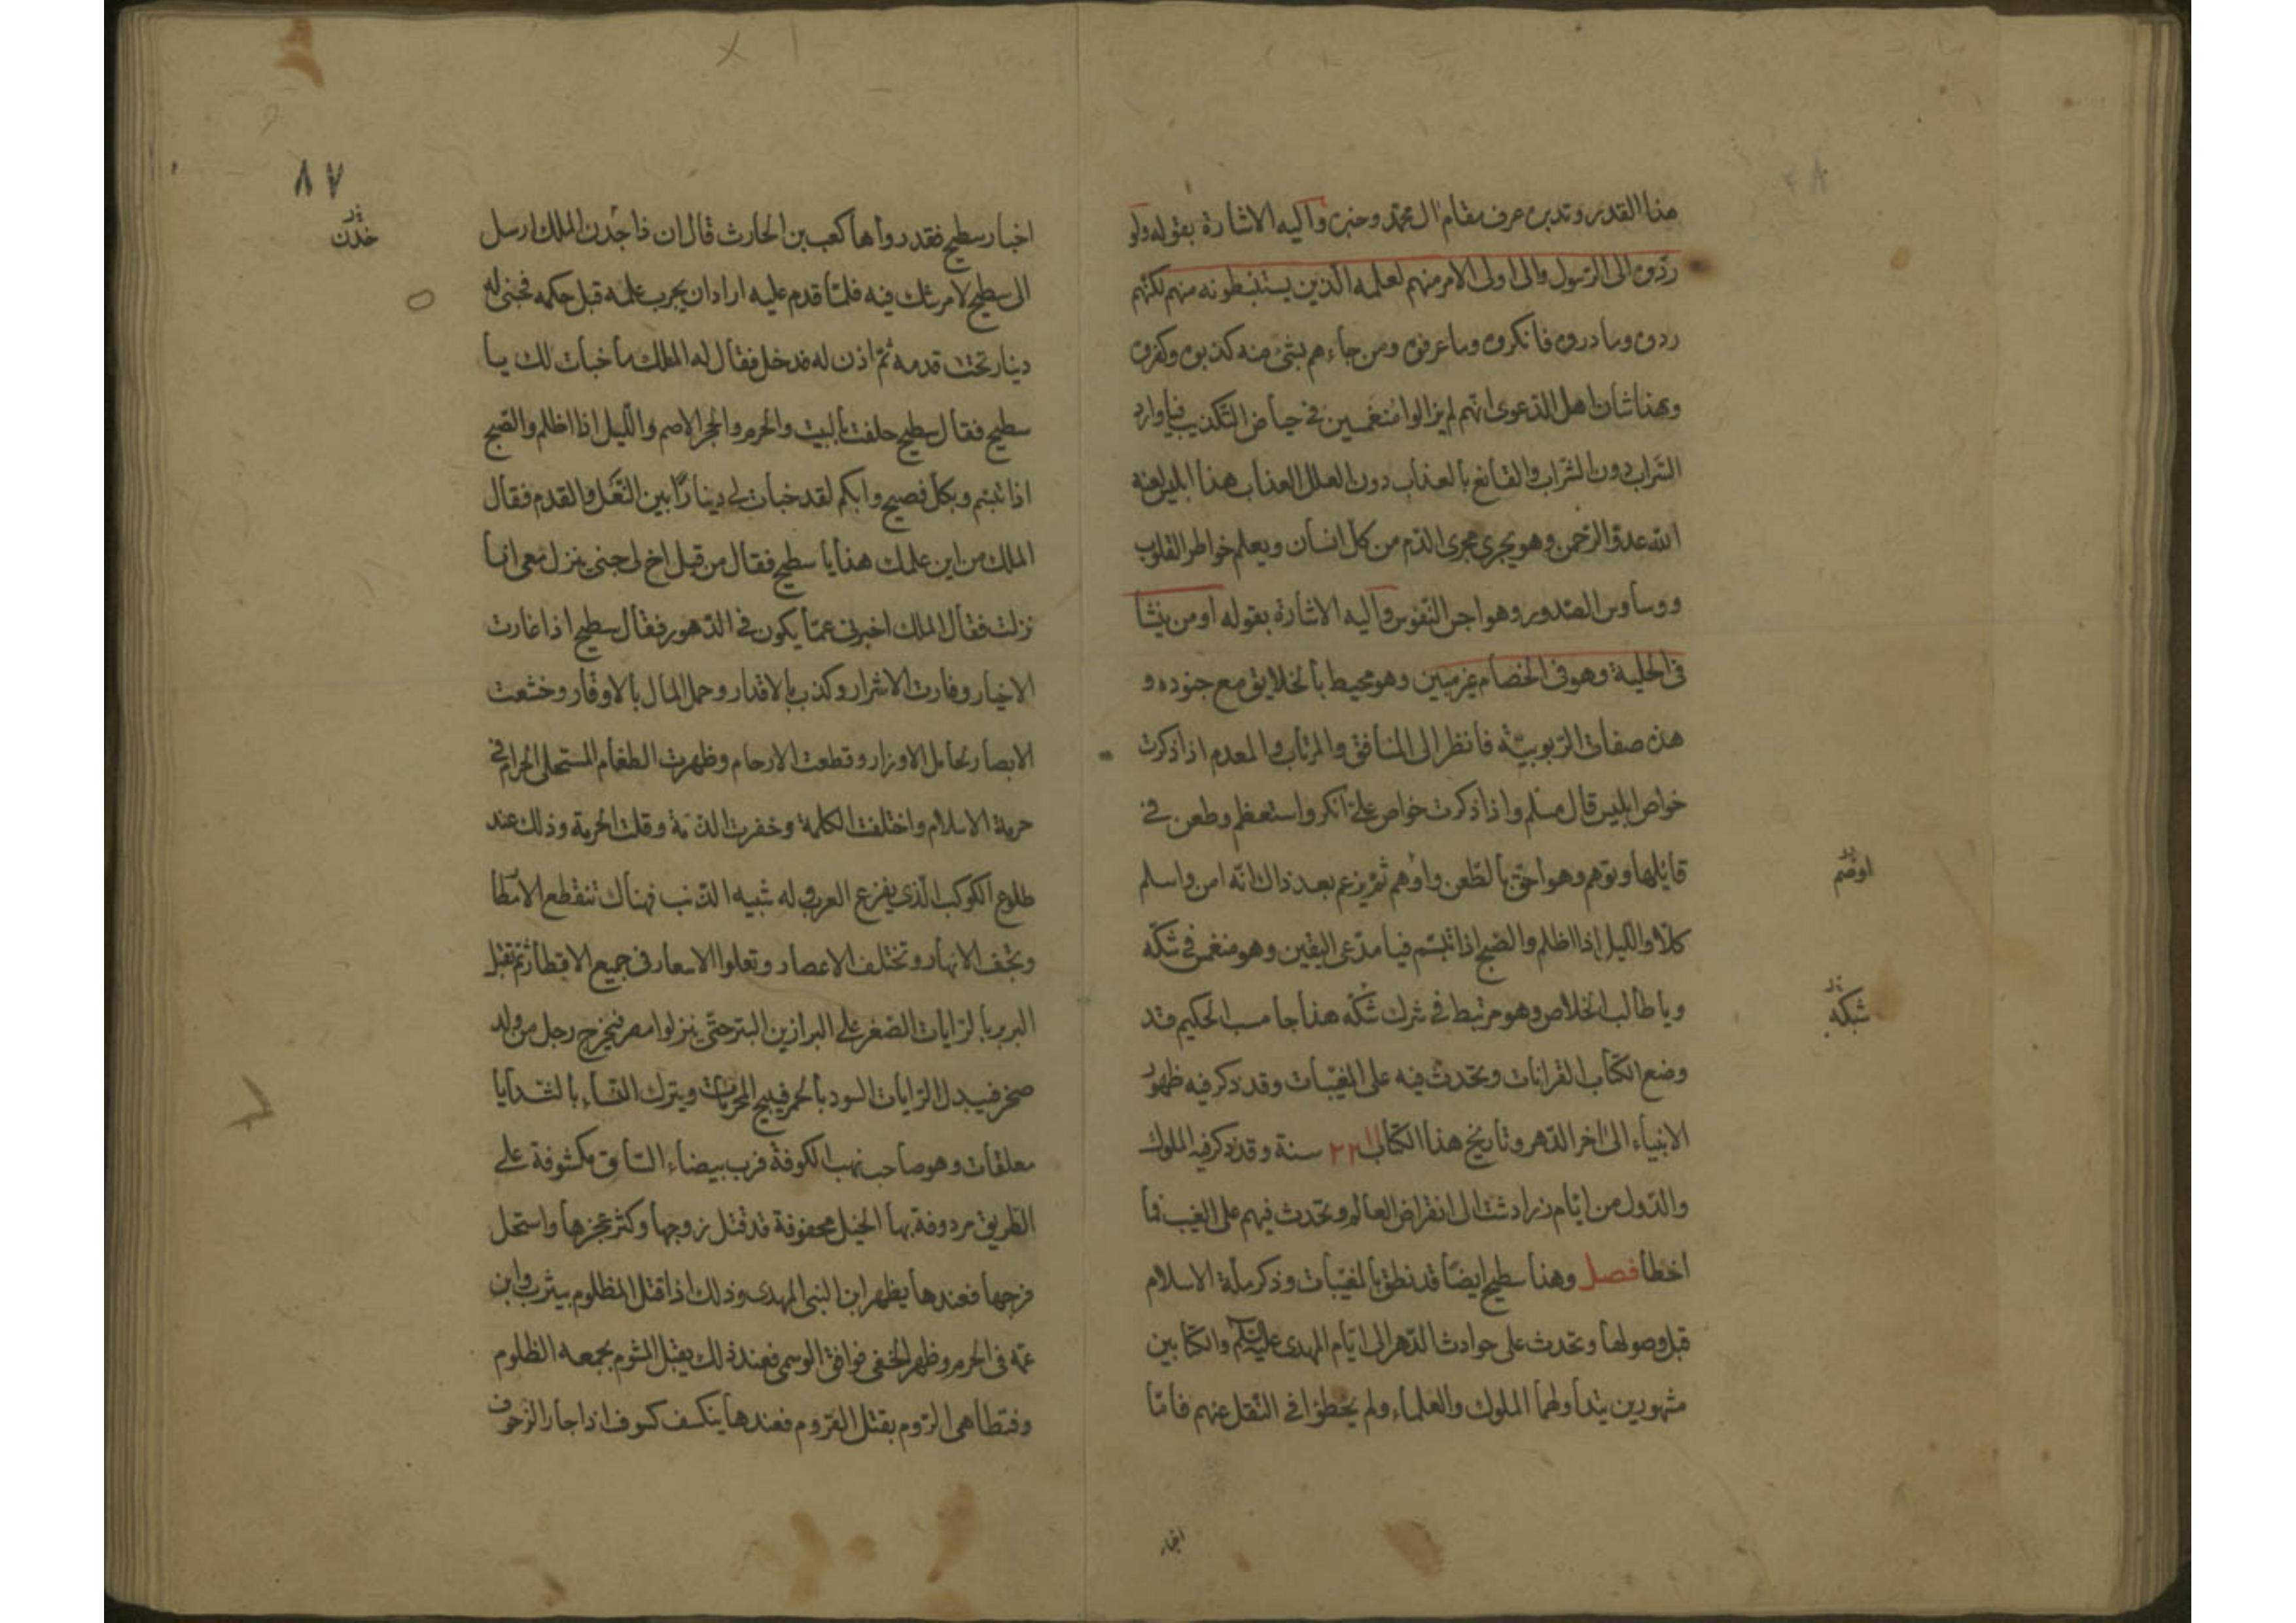 هذا القدر وتدبره عرف مقام ال محمد وخبره واليه الاشارة بقوله ولو
ردوه الى الرسول والى اولى الامر منهم لعلمه الذين يستنبطونه منهم لكنهم
ردوه وما دروه فانكروه وما عرفوه ومن جاءهم بشئ منه كذبوه وكفروه
وهذا شان اهل الدعوى انهم لم يزالوا منغمسين فى حياض التكذيب فيا وارد
السراب دون الشراب والقانع بالعذاب دون العلل العذاب هذا ابليس لعنه
الله عدو الرحمن وهو يجرى مجرى الدم من كل انسان ويعلم خواطر القلوب
ووساوس الصدور وهواجس النفوس واليه الاشارة بقوله او من ينشأ
فى الحلية وهو فى الخصام غير مبين وهو محيط بالخلايق مع جنوده و
هذه صفات الربوبية فانظر الى المنافق والمرتاب والمعدم اذا ذكرت
خواص ابليس قال مسلم واذا ذكرت خواص على انكر واستعظم وطعن فى
قايلها وتوهم وهو احق بالطعن واوهم ثم يزعم بعد ذاك انه امن واسلم
اوصم
كلا والليل اذا اظلم والصبح اذا تبسم فيا مدعى اليقين وهو منغمس فى شكه
ويا طالب الخلاص وهو مرتبط فى شرك شكه هذا جاماسب الحكيم قد
شبكه
وضع الكتاب القرانات وتحدث فيه على المغيبات وقد ذكر فيه ظهور
الانبياء الى اخر الدهر وتاريخ هذا الكتاب سنة وقد ذكر فيه الملوك
والدول من ايام زرادشت الى انقراض العالم وتحدث فيهم على الغيب فما
اخطأ فصل وهذا سطيح ايضا قد نطق بالمغيبات وذكر ملة الاسلام
قبل وصولها وتحدث على حوادث الدهر الى ايام المهدى عليه السلم والكتابين
مشهورين يتداولهما الملوك والعلماء ولم يخطؤا فى النقل عنهم فاما
اخبار
٨٧
اخبار سطيح فقد رواها كعب بن الحارث قال ان ذا جدن الملك ارسل
خدن
الى سطيح لامر شك فيه فلما قدم عليه اراد ان يجرب علمه قبل حكمه فخبى له
دينار تحت قدمه ثم اذن له فدخل فقال له الملك ما خبات لك يا
سطيح فقال سطيح حلفت بالبيت والحرم والحجر الاصم والليل اذا اظلم والصبح
اذا تبسم وبكل فصيح وابكم لقد خبات لى دينارا بين النعل والقدم فقال
الملك من اين علمك هذا يا سطيح فقال من قبل اخ لى جنى ينزل معى انا
نزلت فقال الملك اخبرنى عما يكون فى الدهور فقال سطيح اذا غارت
الاخيار وفارت الاشرار وكذب بالاقدار وحمل المال بالاوقار وخشعت
الابصار لحامل الاوزار وقطعت الارحام وظهرت الطغام المستحلى الحرام فى
حرمة الاسلام واختلفت الكلمة وخفرت الذمة وقلت الحرمة وذلك عند
طلوع الكوكب الذى يفزع العرب وله شبيه الذنب فهناك تنقطع الامطا
وتجف الانهار وتختلف الاعصار وتعلوا الاسعار فى جميع الاقطار ثم تقبل
البربر بالرايات الصفر على البراذين البتر حتى ينزلوا مصر فيخرج رجل من ولد
صخر فيبدل الرايات السود بالحمر فيبيح المحرمات ويترك النساء بالثدايا
معلقات وهو صاحب نهب الكوفة فرب بيضاء الساق مكشوفة على
الطريق مردوفة بها الخيل محفوفة قد قتل زوجها وكثر عجزها واستحل
فرجها فعندها يظهر ابن النبى المهدى وذلك اذا قتل المظلوم بيثرب وابن
عمه فى الحرم وظهر الخفى فوافق الوسمى فعند ذلك يقبل المشوم بجمعه الظلوم
وفتطاهى الروم بقتل القروم فعندها ينكسف كسوف اذا جا الزحوف